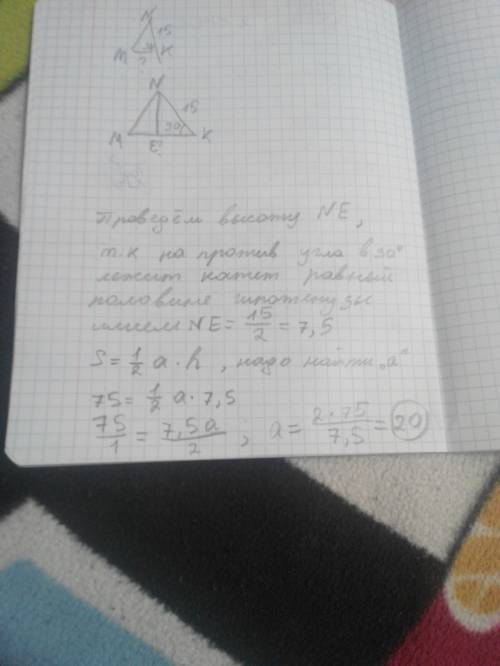 N
15
M K
?
N
15
30°
M E K
?
Проведём высоту NE,
т.к на против угла в 30°
лежит катет равный
половине гипотенузы
имеем NE = 15/2 = 7,5
S = 1/2 a · h , надо найти „a“
75 = 1/2 a · 7,5
75/1 = 7,5a/2 ; a = 2·75/7,5 = 20